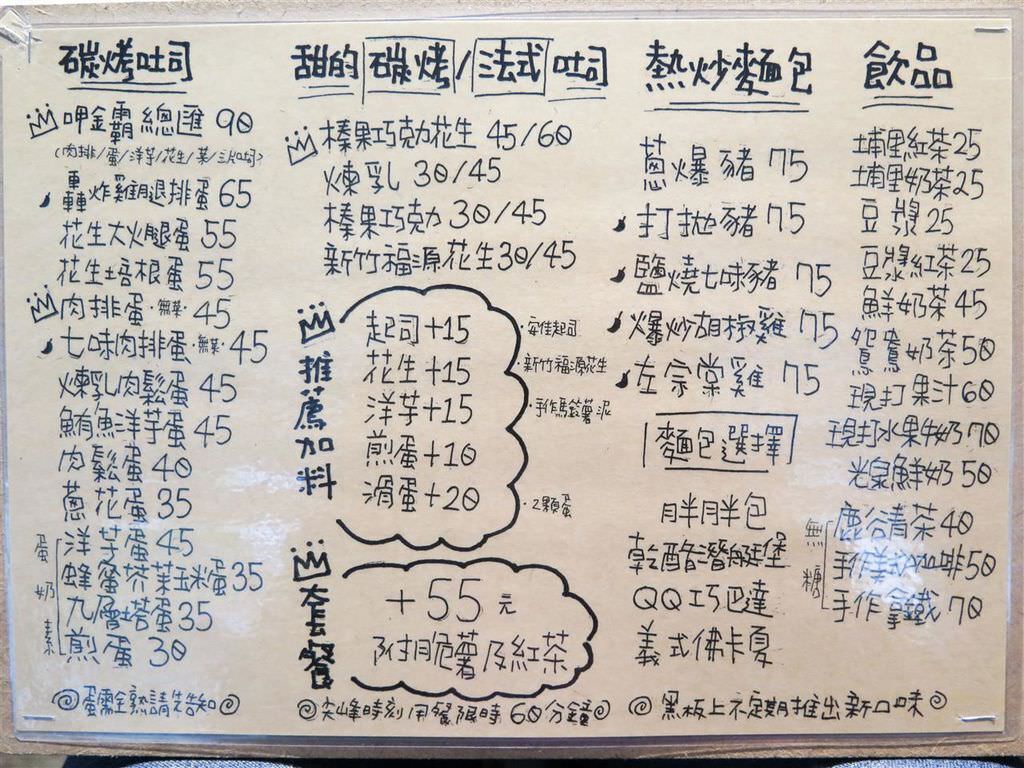 碳烤吐司
呷金霸總匯 90
(肉排/蛋/洋芋/花生/菜/三片吐司)
轟炸雞腿排蛋 65
花生大火腿蛋 55
花生培根蛋 55
肉排蛋·無菜·45
七味肉排蛋·無菜·45
煉乳肉鬆蛋 45
鮪魚洋芋蛋 45
肉鬆蛋 40
蔥花蛋 35
蛋奶素
洋芋蛋 45
蜂蜜芥茉玉米蛋 35
九層塔蛋 35
煎蛋 30
蛋需全熟請先告知
甜的碳烤/法式吐司
榛果巧克力花生 45/60
煉乳 30/45
榛果巧克力 30/45
新竹福源花生 30/45
推薦加料
起司+15 ·安佳起司
花生+15 ·新竹福源花生
洋芋+15 ·手作馬鈴薯泥
煎蛋+10
滑蛋+20 ·2顆蛋
套餐
+55元
附脆薯及紅茶
尖峰時刻用餐限時60分鐘
熱炒麵包
蔥爆豬 75
打拋豬 75
鹽燒七味豬 75
爆炒胡椒雞 75
左宗棠雞 75
麵包選擇
胖胖包
乾酪潛艇堡
QQ巧巴達
義式佛卡夏
黑板上不定期推出新口味
飲品
埔里紅茶 25
埔里奶茶 25
豆漿 25
豆漿紅茶 25
鮮奶茶 45
鴛鴦奶茶 50
現打果汁 60
現打水果牛奶 70
光泉鮮奶 50
無糖
鹿谷清茶 40
手作美式咖啡 50
手作拿鐵 70